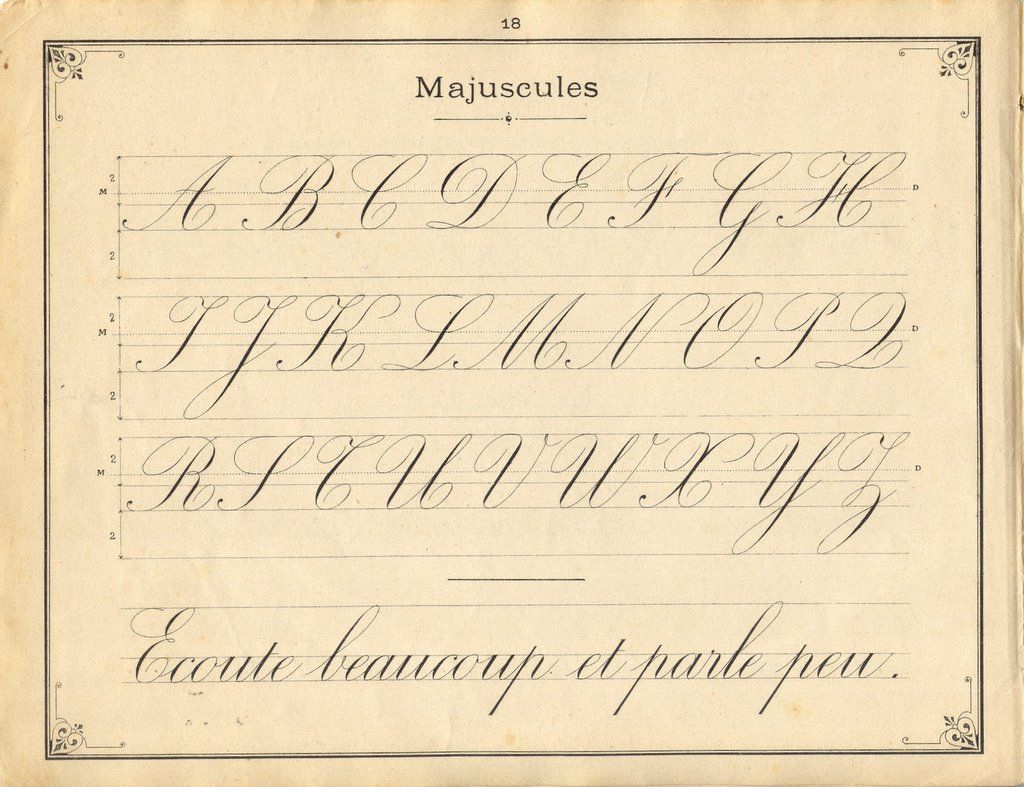 18
Majuscules
2
M A B C D E F G H D
2
2
M I J K L M N O P Q D
2
2
M R S T U V W X Y Z D
2
Ecoute beaucoup et parle peu.